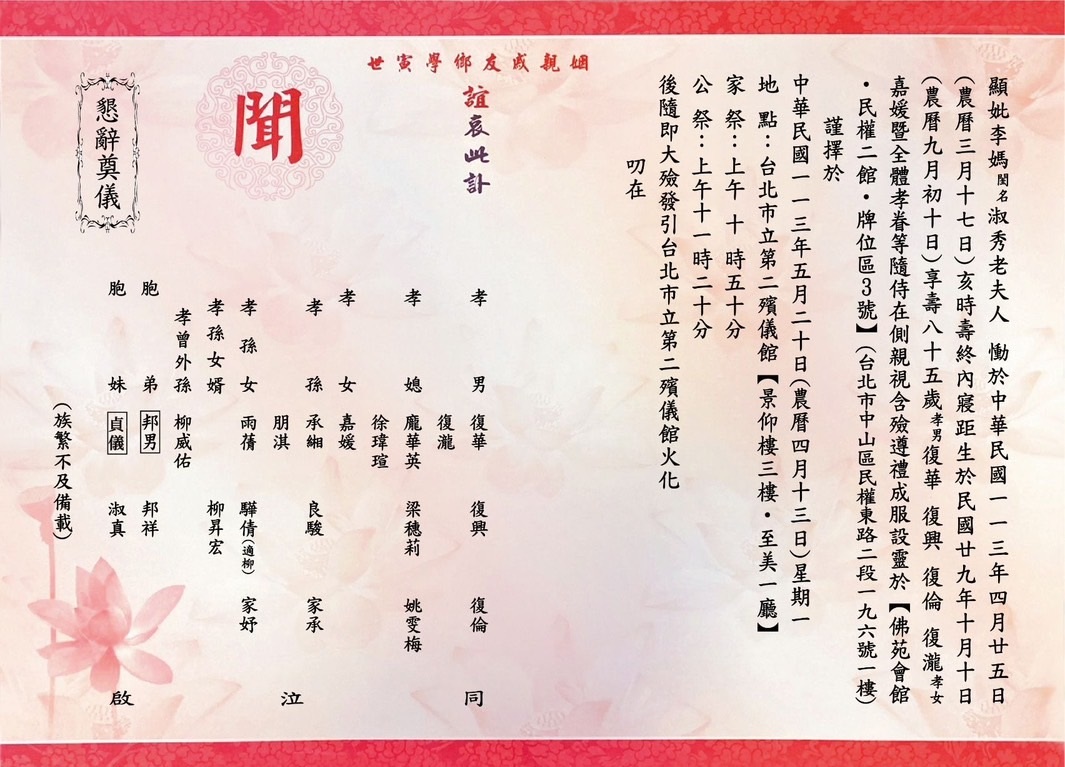 顯妣李媽閨名淑秀老夫人　慟於中華民國一一三年四月廿五日
(農曆三月十七日)亥時壽終內寢距生於民國廿九年十月十日
(農曆九月初十日)享壽八十五歲孝男復華　復興　復倫　復瀧孝女
嘉媛暨全體孝眷等隨侍在側親視含殮遵禮成服設靈於【佛苑會館
・民權二館・牌位區3號】(台北市中山區民權東路二段一九六號一樓)
謹擇於
中華民國一一三年五月二十日(農曆四月十三日)星期一
地　點：台北市立第二殯儀館【景仰樓三樓・至美一廳】
家　祭：上午　十　時五十分
公　祭：上午十一時二十分
後隨即大殮發引台北市立第二殯儀館火化
叨在
姻親戚友鄉學寅世
誼哀此訃
聞
孝　男　復華　復興　復倫
復瀧
孝　媳　龐華英　梁穗莉　姚雯梅
徐瑋瑄
孝　女　嘉媛
孝　孫　承緗　良駿　家承
朋淇
孝孫女　雨蒨　驊倩(適柳)　家妤
孝孫女婿　柳昇宏
孝曾外孫　柳威佑
胞　弟　邦男　邦祥
胞　妹　貞儀　淑真
同　泣　啟
(族繁不及備載)
懇辭奠儀